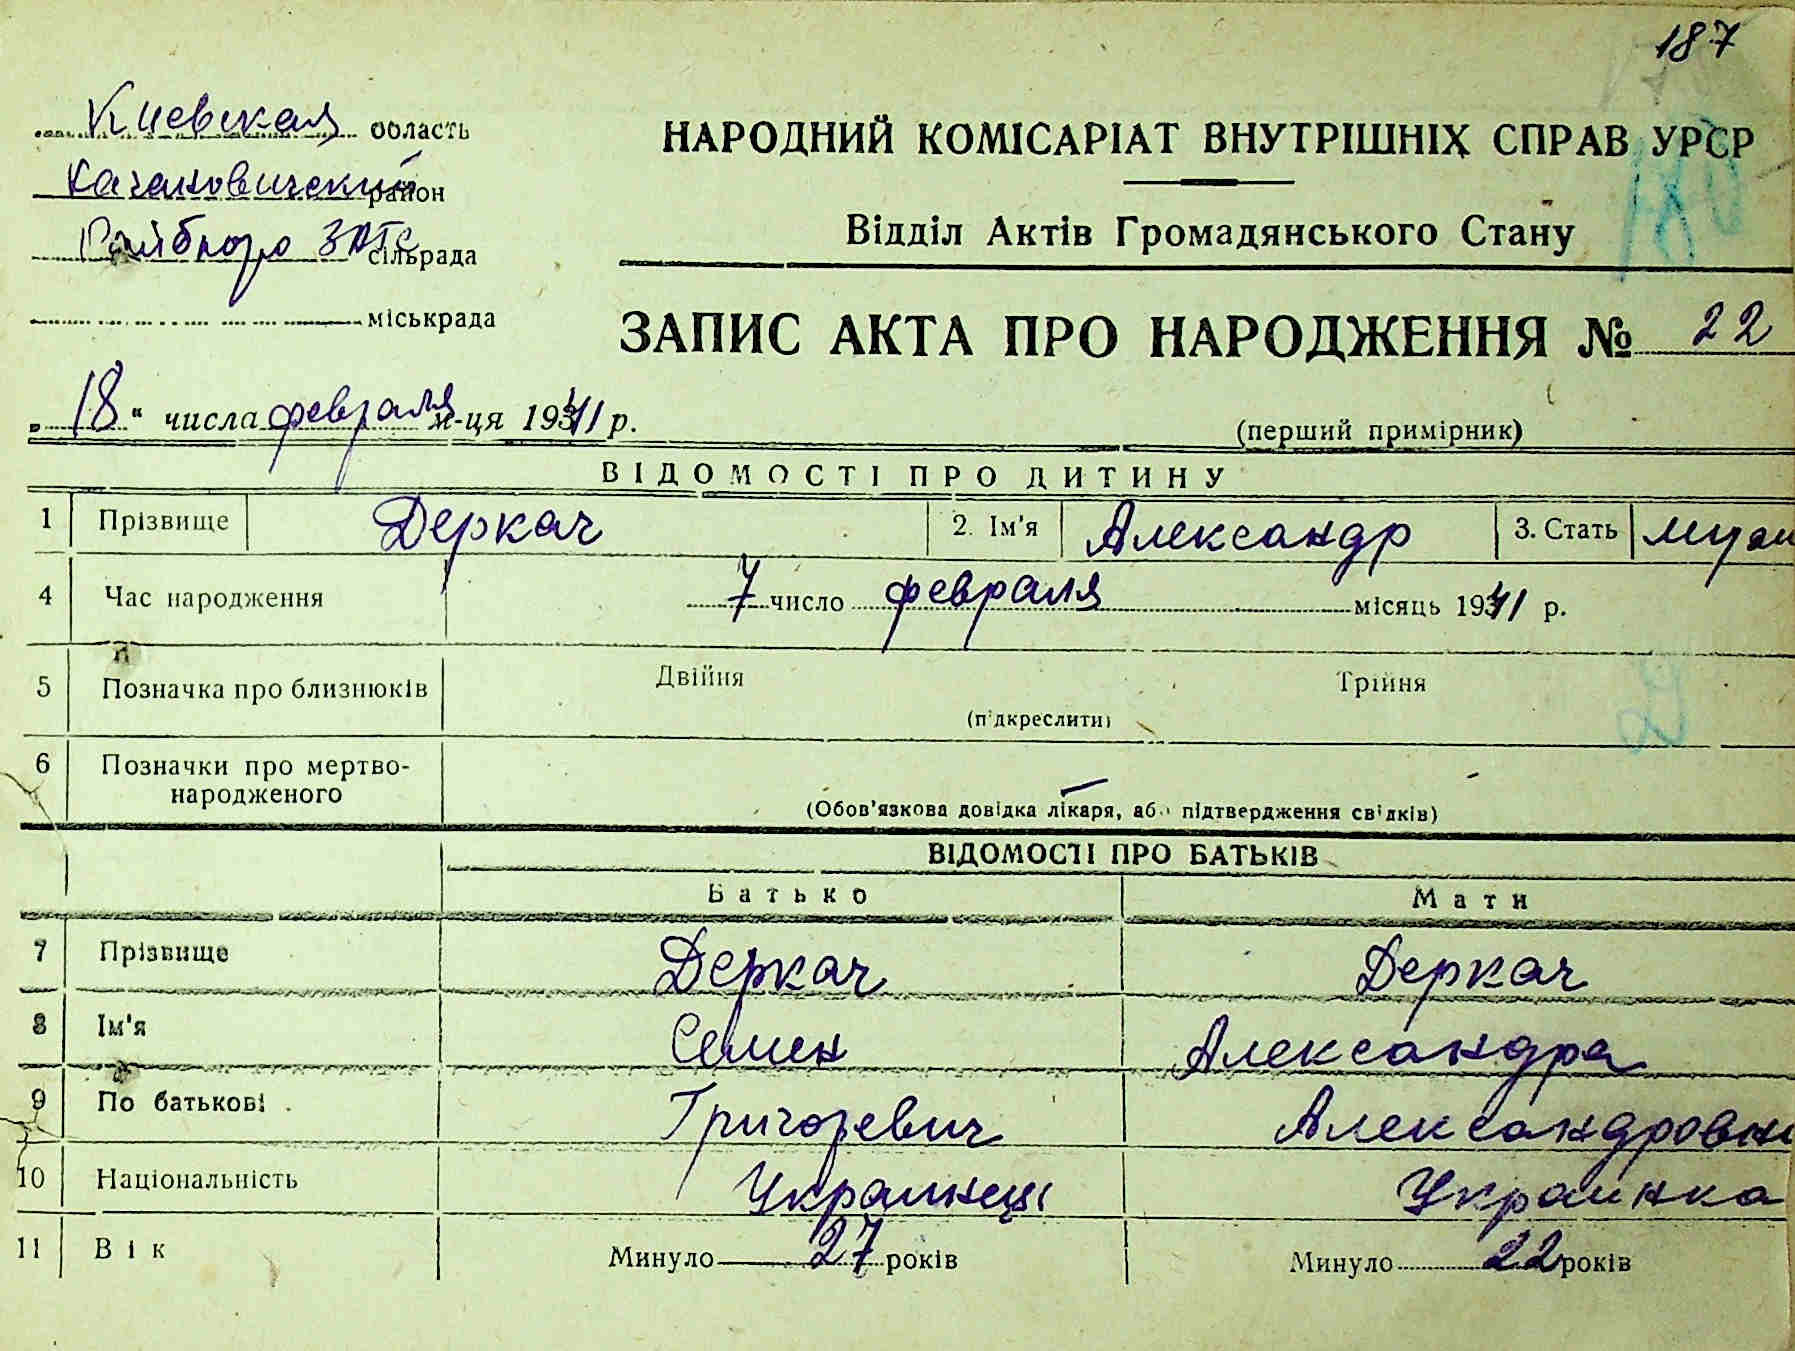 187
Киевская область
НАРОДНИЙ КОМІСАРІАТ ВНУТРІШНІХ СПРАВ УРСР
Качановичский район
Райбюро ЗАГС сільрада
Відділ Актів Громадянського Стану
міськрада
ЗАПИС АКТА ПРО НАРОДЖЕННЯ № 22
„18“ числа февраля м-ця 1941 р.
(перший примірник)
ВІДОМОСТІ ПРО ДИТИНУ
1 Прізвище Деркач 2. Ім'я Александр 3. Стать муж
4 Час народження 7 число февраля місяць 1941 р.
5 Позначка про близнюків Двійня Трійня
(підкреслити)
6 Позначки про мертво-
народженого
(Обов'язкова довідка лікаря, або підтвердження свідків)
ВІДОМОСТІ ПРО БАТЬКІВ
Батько Мати
7 Прізвище Деркач Деркач
8 Ім'я Семен Александра
9 По батькові Григоревич Александровн
10 Національність Украинец Украинка
11 Вік Минуло 27 років Минуло 22 років